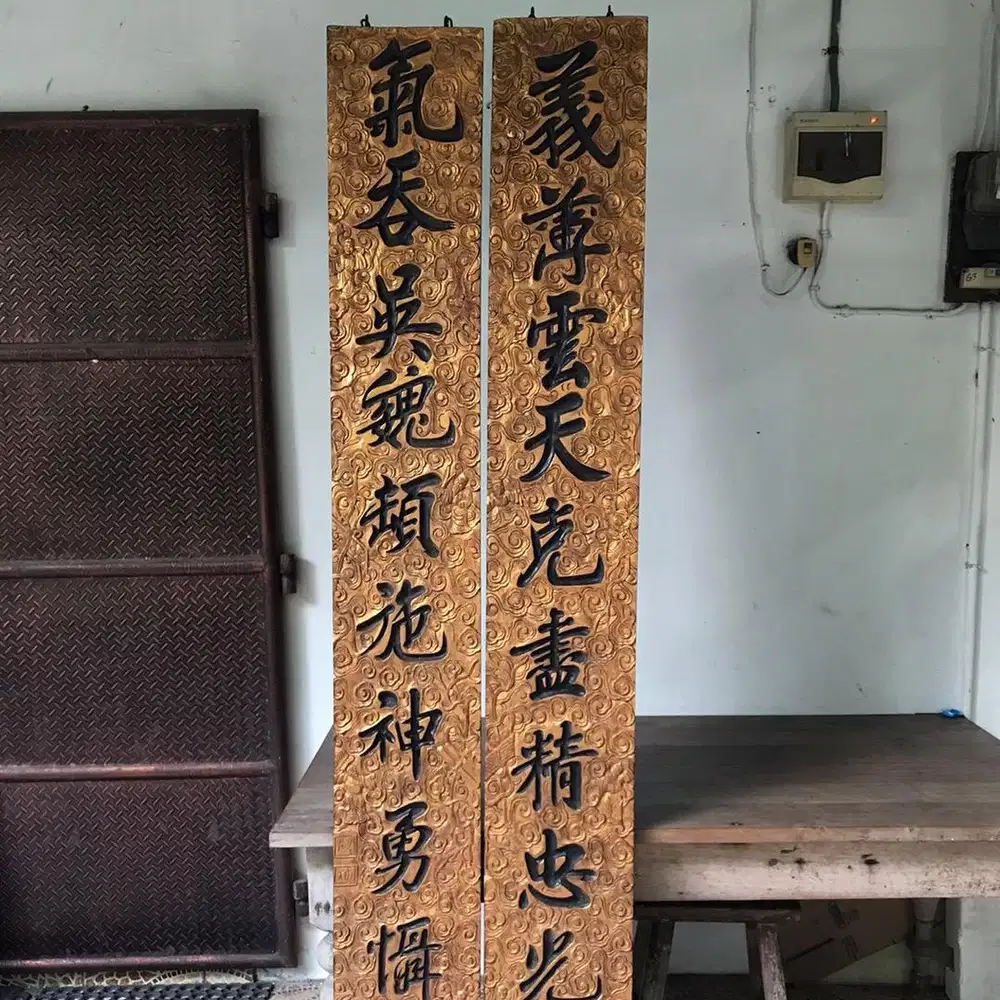 義薄雲天克盡精忠光
氣吞吳魏頓施神勇懾